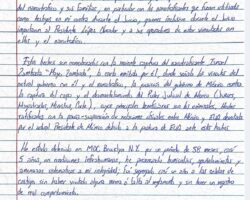 del narcotráfico y sus familias, en particular con los narcotraficantes que fueron utilizados
como testigos en mi contra durante el juicio, quienes inclusive durante el juicio
el actual Presidente López Obrador y a sus operadores de estar vinculados con
ellos y el narcotráfico.
Estos hechos son corroborados con la reciente captura del narcotraficante Ismael
Zambada "Mayo Zambada", la carta emitida por él, donde señala la vinculación del
actual gobierno con él y el narcotráfico, la posición del gobierno de México contra
la captura del capo y el desmantelamiento del Poder Judicial de México (Jueces,
Magistrados, Ministros, Corte), cuyas principales beneficiarios son los criminales, hechos
ratificados con la pausa-suspensión de relaciones oficiales entre México y EUA decretada
por el actual Presidente de México debido a la postura de EUA ante estos temas.
He estado detenido en MDC Brooklyn N.Y. por un periodo de 58 meses, casi
5 años, en condiciones infrahumanas, he presenciado homicidios, apuñalamientos y
amenazas constantes a mi integridad. Fui segregado casi un año a las celdas de
castigo sin haber violado alguna norma o falta al reglamento y sin tener un registro
de mal comportamiento.